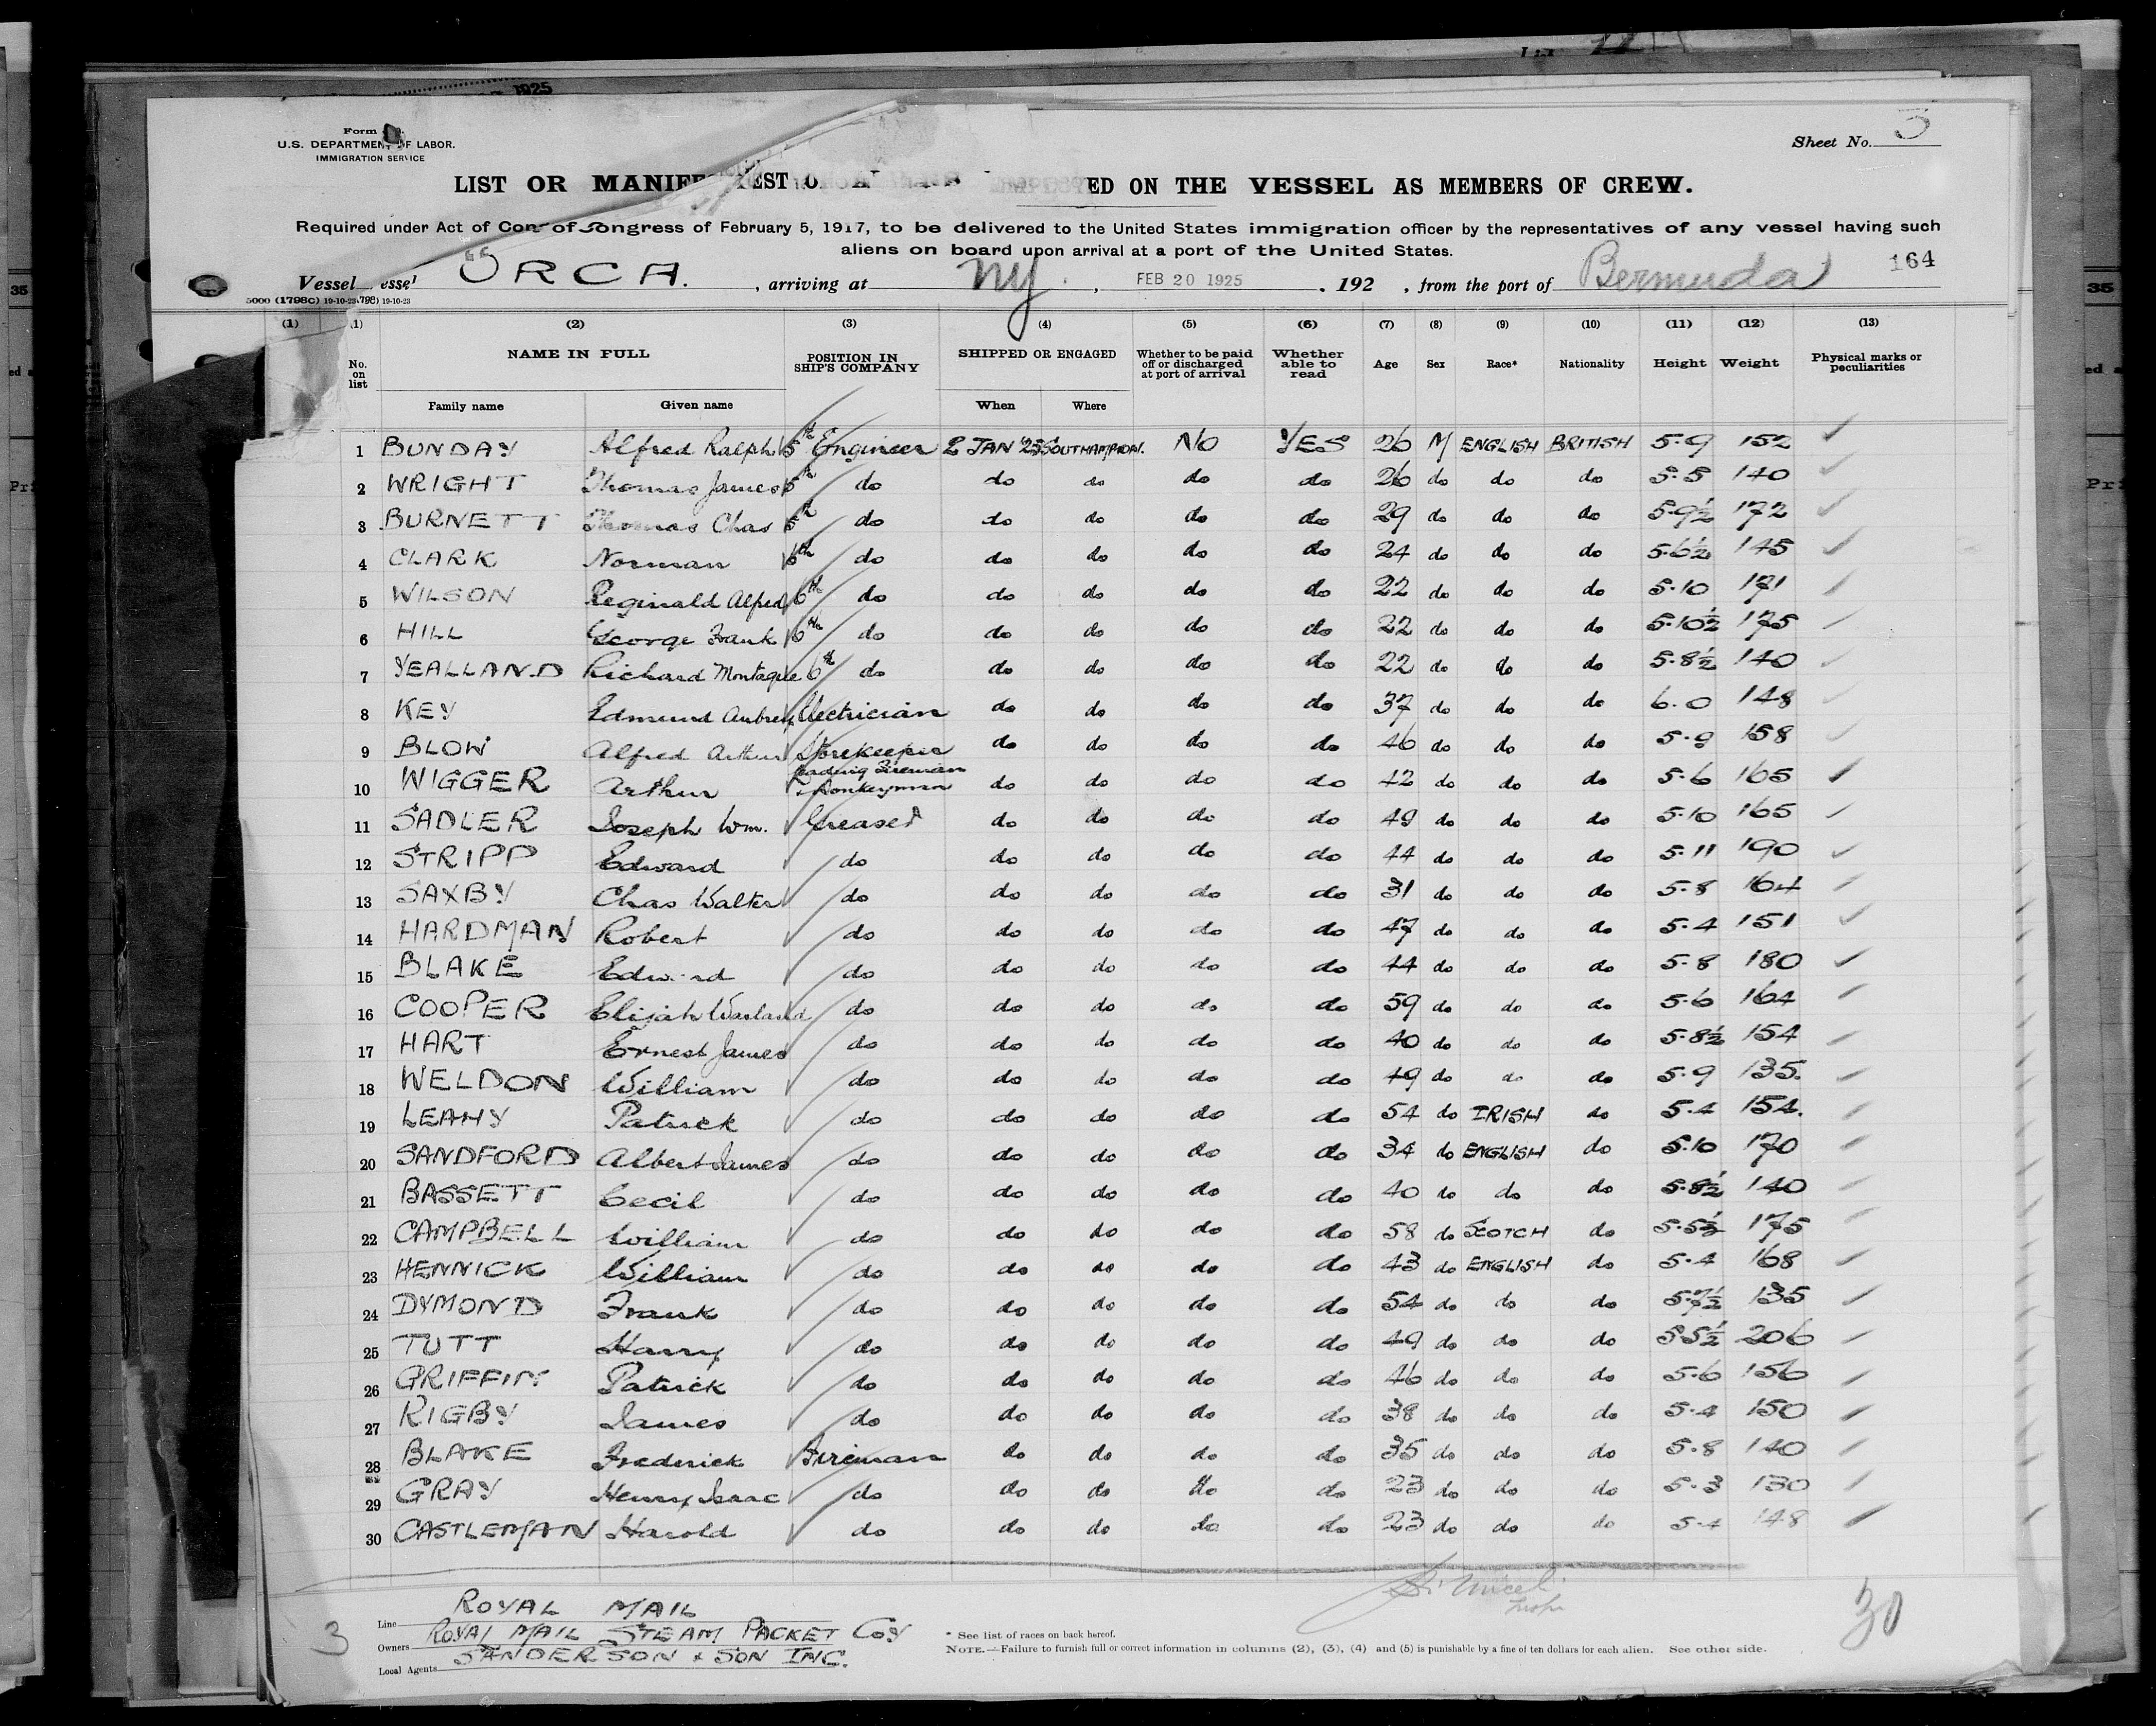 1925
Form
U.S. DEPARTMENT OF LABOR.
IMMIGRATION SERVICE
Sheet No. 3
ED ON THE VESSEL AS MEMBERS OF CREW.
Required under Act of Congress of February 5, 1917, to be delivered to the United States immigration officer by the representatives of any vessel having such
aliens on board upon arrival at a port of the United States.
Vessel "ORCA. , arriving at NY. , FEB 20 1925 . 192 , from the port of Bermuda 164
5000 (1798C) 19-10-23
(1) (1) (2) (3) (4) (5) (6) (7) (8) (9) (10) (11) (12) (13)
No. on list NAME IN FULL POSITION IN SHIP'S COMPANY SHIPPED OR ENGAGED Whether to be paid off or discharged at port of arrival Whether able to read Age Sex Race* Nationality Height Weight Physical marks or peculiarities
Family name Given name When Where
1 BUNDAY Alfred Ralph 5th Engineer 2 JAN '25 SOUTHAMPTON. NO YES 26 M ENGLISH BRITISH 5-9 152
2 WRIGHT Thomas James 5th do do do do do 26 do do do 5-5 140
3 BURNETT Thomas Chas 5th do do do do do 29 do do do 5-9½ 172
4 CLARK Norman 6th do do do do do 24 do do do 5-6½ 145
5 WILSON Reginald Alfred 6th do do do do do 22 do do do 5-10 171
6 HILL George Frank 6th do do do do do 22 do do do 5-10½ 175
7 YEALLAND Richard Montague 6th do do do do do 22 do do do 5-8½ 140
8 KEY Edmund Aubrey Electrician do do do do 37 do do do 6-0 148
9 BLOW Alfred Arthur Storekeeper do do do do 46 do do do 5-9 158
10 WIGGER Arthur Leading Fireman & Donkeyman do do do do 42 do do do 5-6 165
11 SADLER Joseph Wm. Greaser do do do do 49 do do do 5-10 165
12 STRIPP Edward do do do do do 44 do do do 5-11 190
13 SAXBY Chas Walter do do do do do 31 do do do 5-8 164
14 HARDMAN Robert do do do do do 47 do do do 5-4 151
15 BLAKE Edward do do do do do 44 do do do 5-8 180
16 COOPER Elijah do do do do do 59 do do do 5-6 164
17 HART Ernest James do do do do do 40 do do do 5-8½ 154
18 WELDON William do do do do do 49 do do do 5-9 135.
19 LEAHY Patrick do do do do do 54 do IRISH do 5-4 154.
20 SANDFORD Albert James do do do do do 34 do ENGLISH do 5-10 170
21 BASSETT Cecil do do do do do 40 do do do 5-8½ 140
22 CAMPBELL William do do do do do 58 do SCOTCH do 5-5½ 175
23 HENNICK William do do do do do 43 do ENGLISH do 5-4 168
24 DYMOND Frank do do do do do 54 do do do 5-7½ 135
25 TUTT Harry do do do do do 49 do do do 5-5½ 206
26 GRIFFIN Patrick do do do do do 46 do do do 5-6 156
27 RIGBY James do do do do do 38 do do do 5-4 150
28 BLAKE Frederick Fireman do do do do 35 do do do 5-8 140
29 GRAY Henry Isaac do do do do do 23 do do do 5-3 130
30 CASTLEMAN Harold do do do do do 23 do do do 5-4 148
3
Line ROYAL MAIL
Owners ROYAL MAIL STEAM PACKET COY
Local Agents SANDERSON & SON INC.
* See list of races on back hereof.
NOTE.—Failure to furnish full or correct information in columns (2), (3), (4) and (5) is punishable by a fine of ten dollars for each alien. See other side.
30